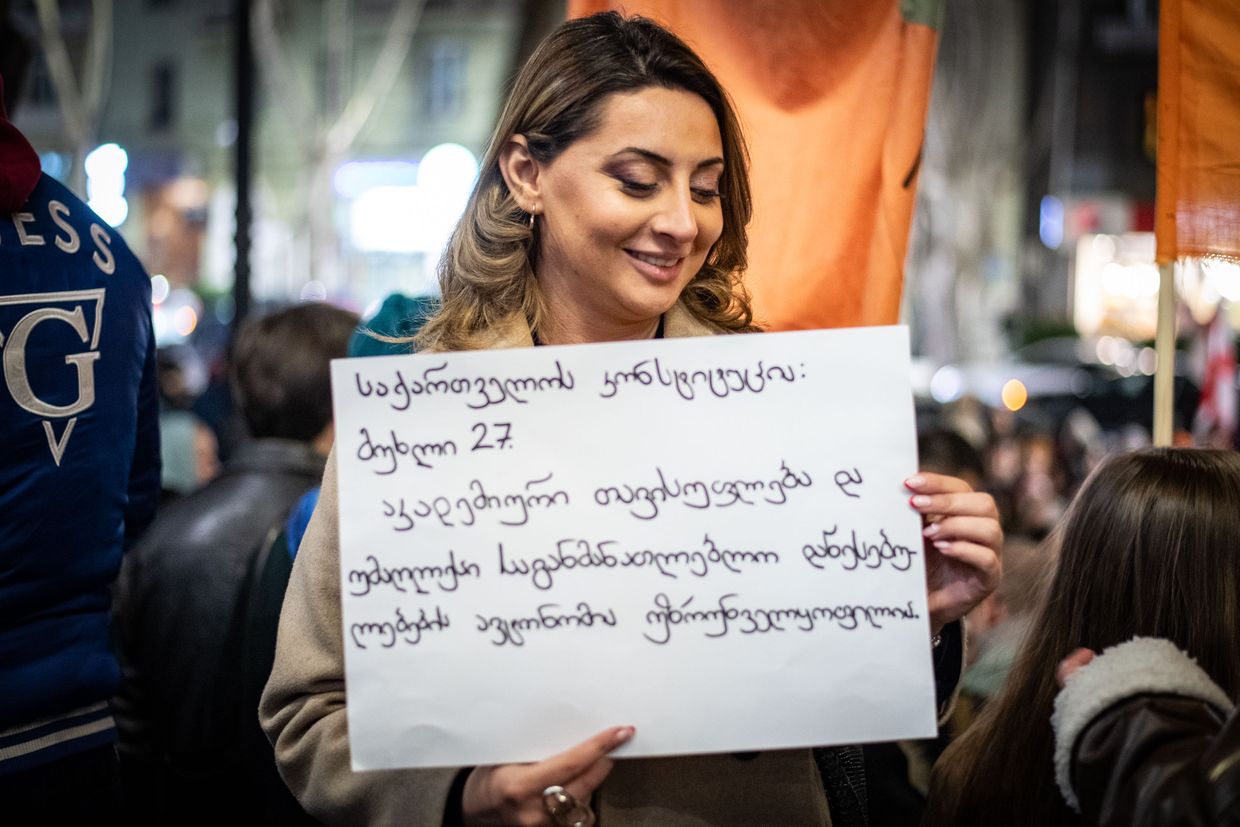 ESS
G
საქართველოს კონსტიტუცია:
მუხლი 27.
აკადემიური თავისუფლება და
უმაღლესი საგანმანათლებლო დაწესებუ-
ლებების ავტონომია უზრუნველყოფილია.